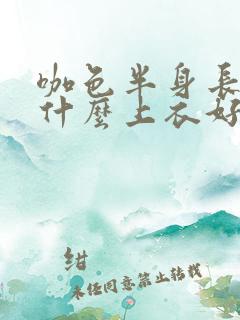 咖色半身長
什麼上衣好
紺
未经同意禁止转载